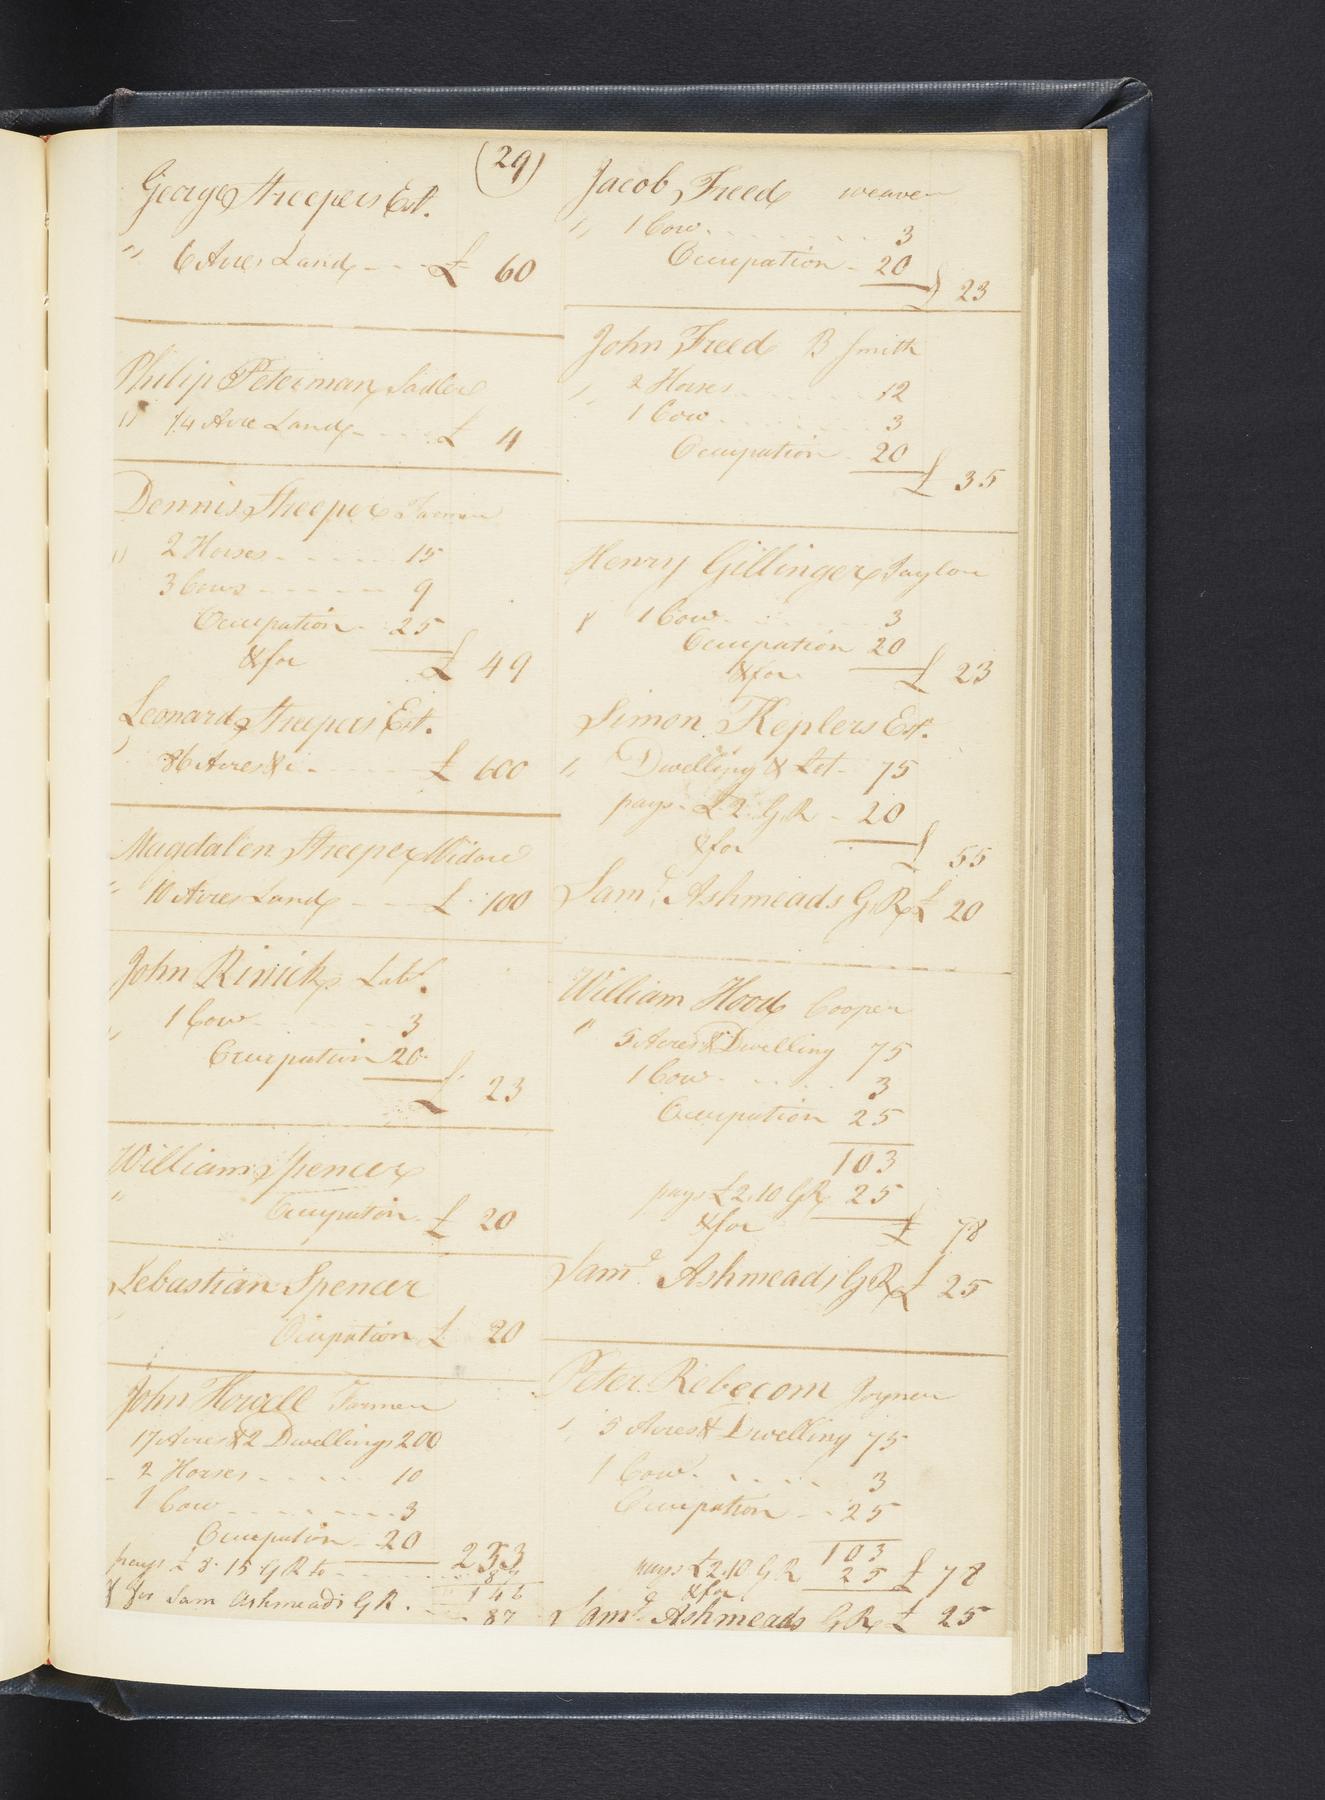 (29)
George Streepers Est.
" 6 Acres Land - - - £ 60
Philip Peterman Sadler
" 1/4 Acre Land - - - £ 4
Dennis Streeper Farmer
" 2 Horses - - - 15
3 Cows - - - 9
Occupation - 25
& for £ 49
Leonard Streepers Est.
86 Acres &c - - - £ 600
Magdalen Streeper Widow
" 10 Acres Land - - - £ 100
John Rinick Labr.
" 1 Cow - - - 3
Occupation 20
£ 23
William Spencer
" Occupation - £ 20
Sebastian Spencer
Ocupation £ 20
John Howell Farmer
17 Acres & 2 Dwellings 200
2 Horses - - - 10
1 Cow - - - 3
Occupation - 20 233
pays £ 8.15 GR to - - - 87
146
& for Sam Ashmeads GR. - - 87
Jacob Freed weaver
" 1 Cow - - - 3
Occupation - 20
£ 23
John Freed B Smith
" 2 Horses - - - 12
1 Cow - - - 3
Occupation - 20
£ 35
Henry Gillinger Taylor
1 Cow - - - 3
Occupation 20
& for £ 23
Simon Keplers Est.
" Dwelling & Lot - 75
pays £2 GR - 20
& for £ 55
Saml. Ashmeads GR £ 20
William Hood Cooper
" 5 Acres & Dwelling 75
1 Cow - - - 3
Occupation 25
103
pays £2.10 GR 25
& for £ 78
Saml. Ashmeads GR £ 25
Peter Rebecom Joyner
" 5 Acres & Dwelling 75
1 Cow - - - 3
Occupation - - 25
103
pays £2.10 GR 25 £ 78
& for
Saml. Ashmeads GR £ 25